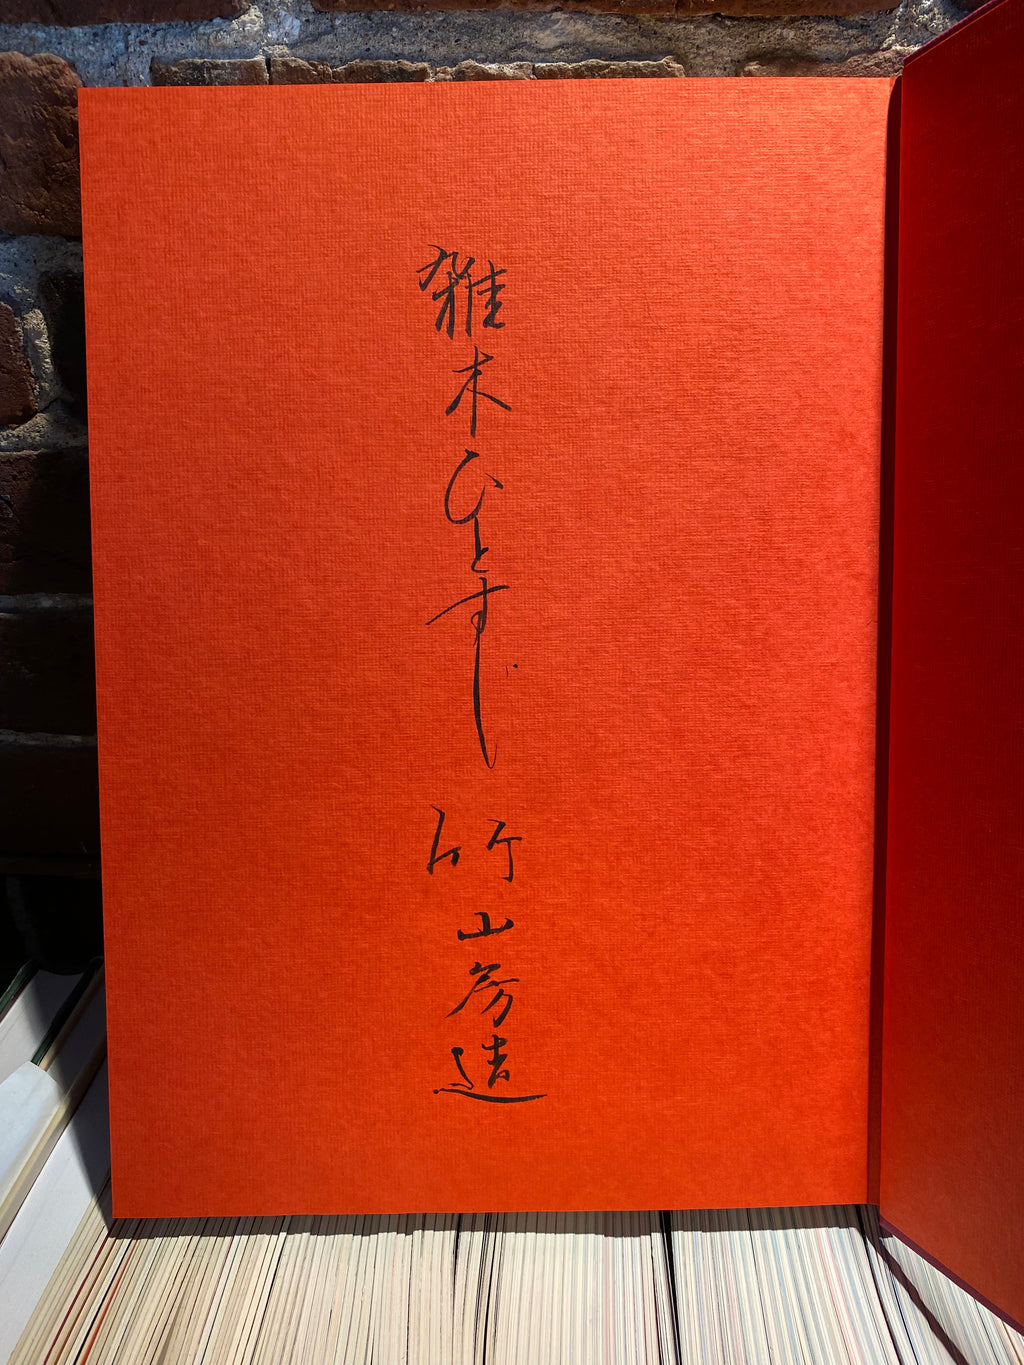 雑木ひとすじ 竹山房造